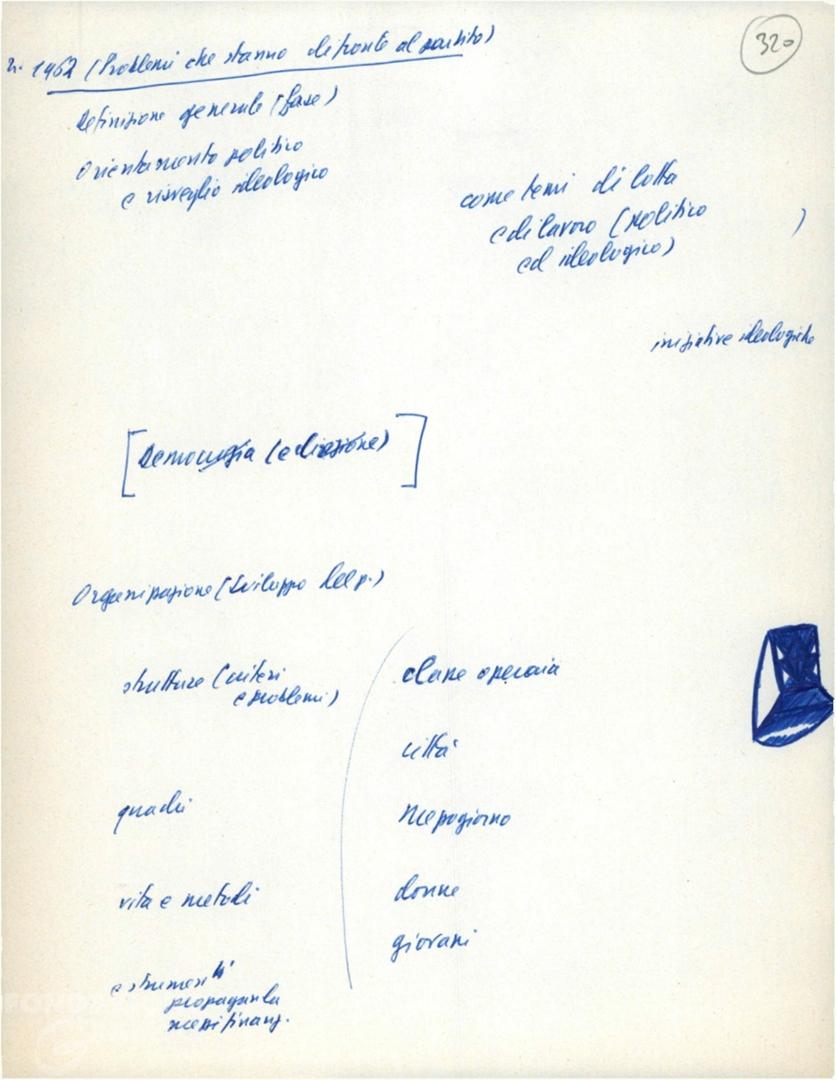 320
1962 (Problemi che stanno di fronte al partito)
Definizione generale (base)
Orientamento politico
e risveglio ideologico
come temi di lotta
e di lavoro (politico )
ed ideologico)
iniziative ideologiche
[Democrazia (e direzione)]
Organizzazione (Sviluppo del p.)
strutture (criteri
e problemi)
classe operaia
città
quadri
Mezzogiorno
vita e metodi
donne
giovani
e strumenti
propaganda
mezzi finanz.